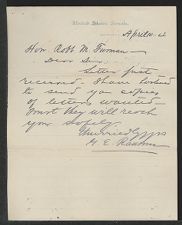 United States Senate.
April 4
Hon Robt M. Furman—
Dear Sir,
Letter just
received. I have wired
to send you copies
of letters wanted—
trust they will reach
you safely.
Hurriedly yrs
H. E.